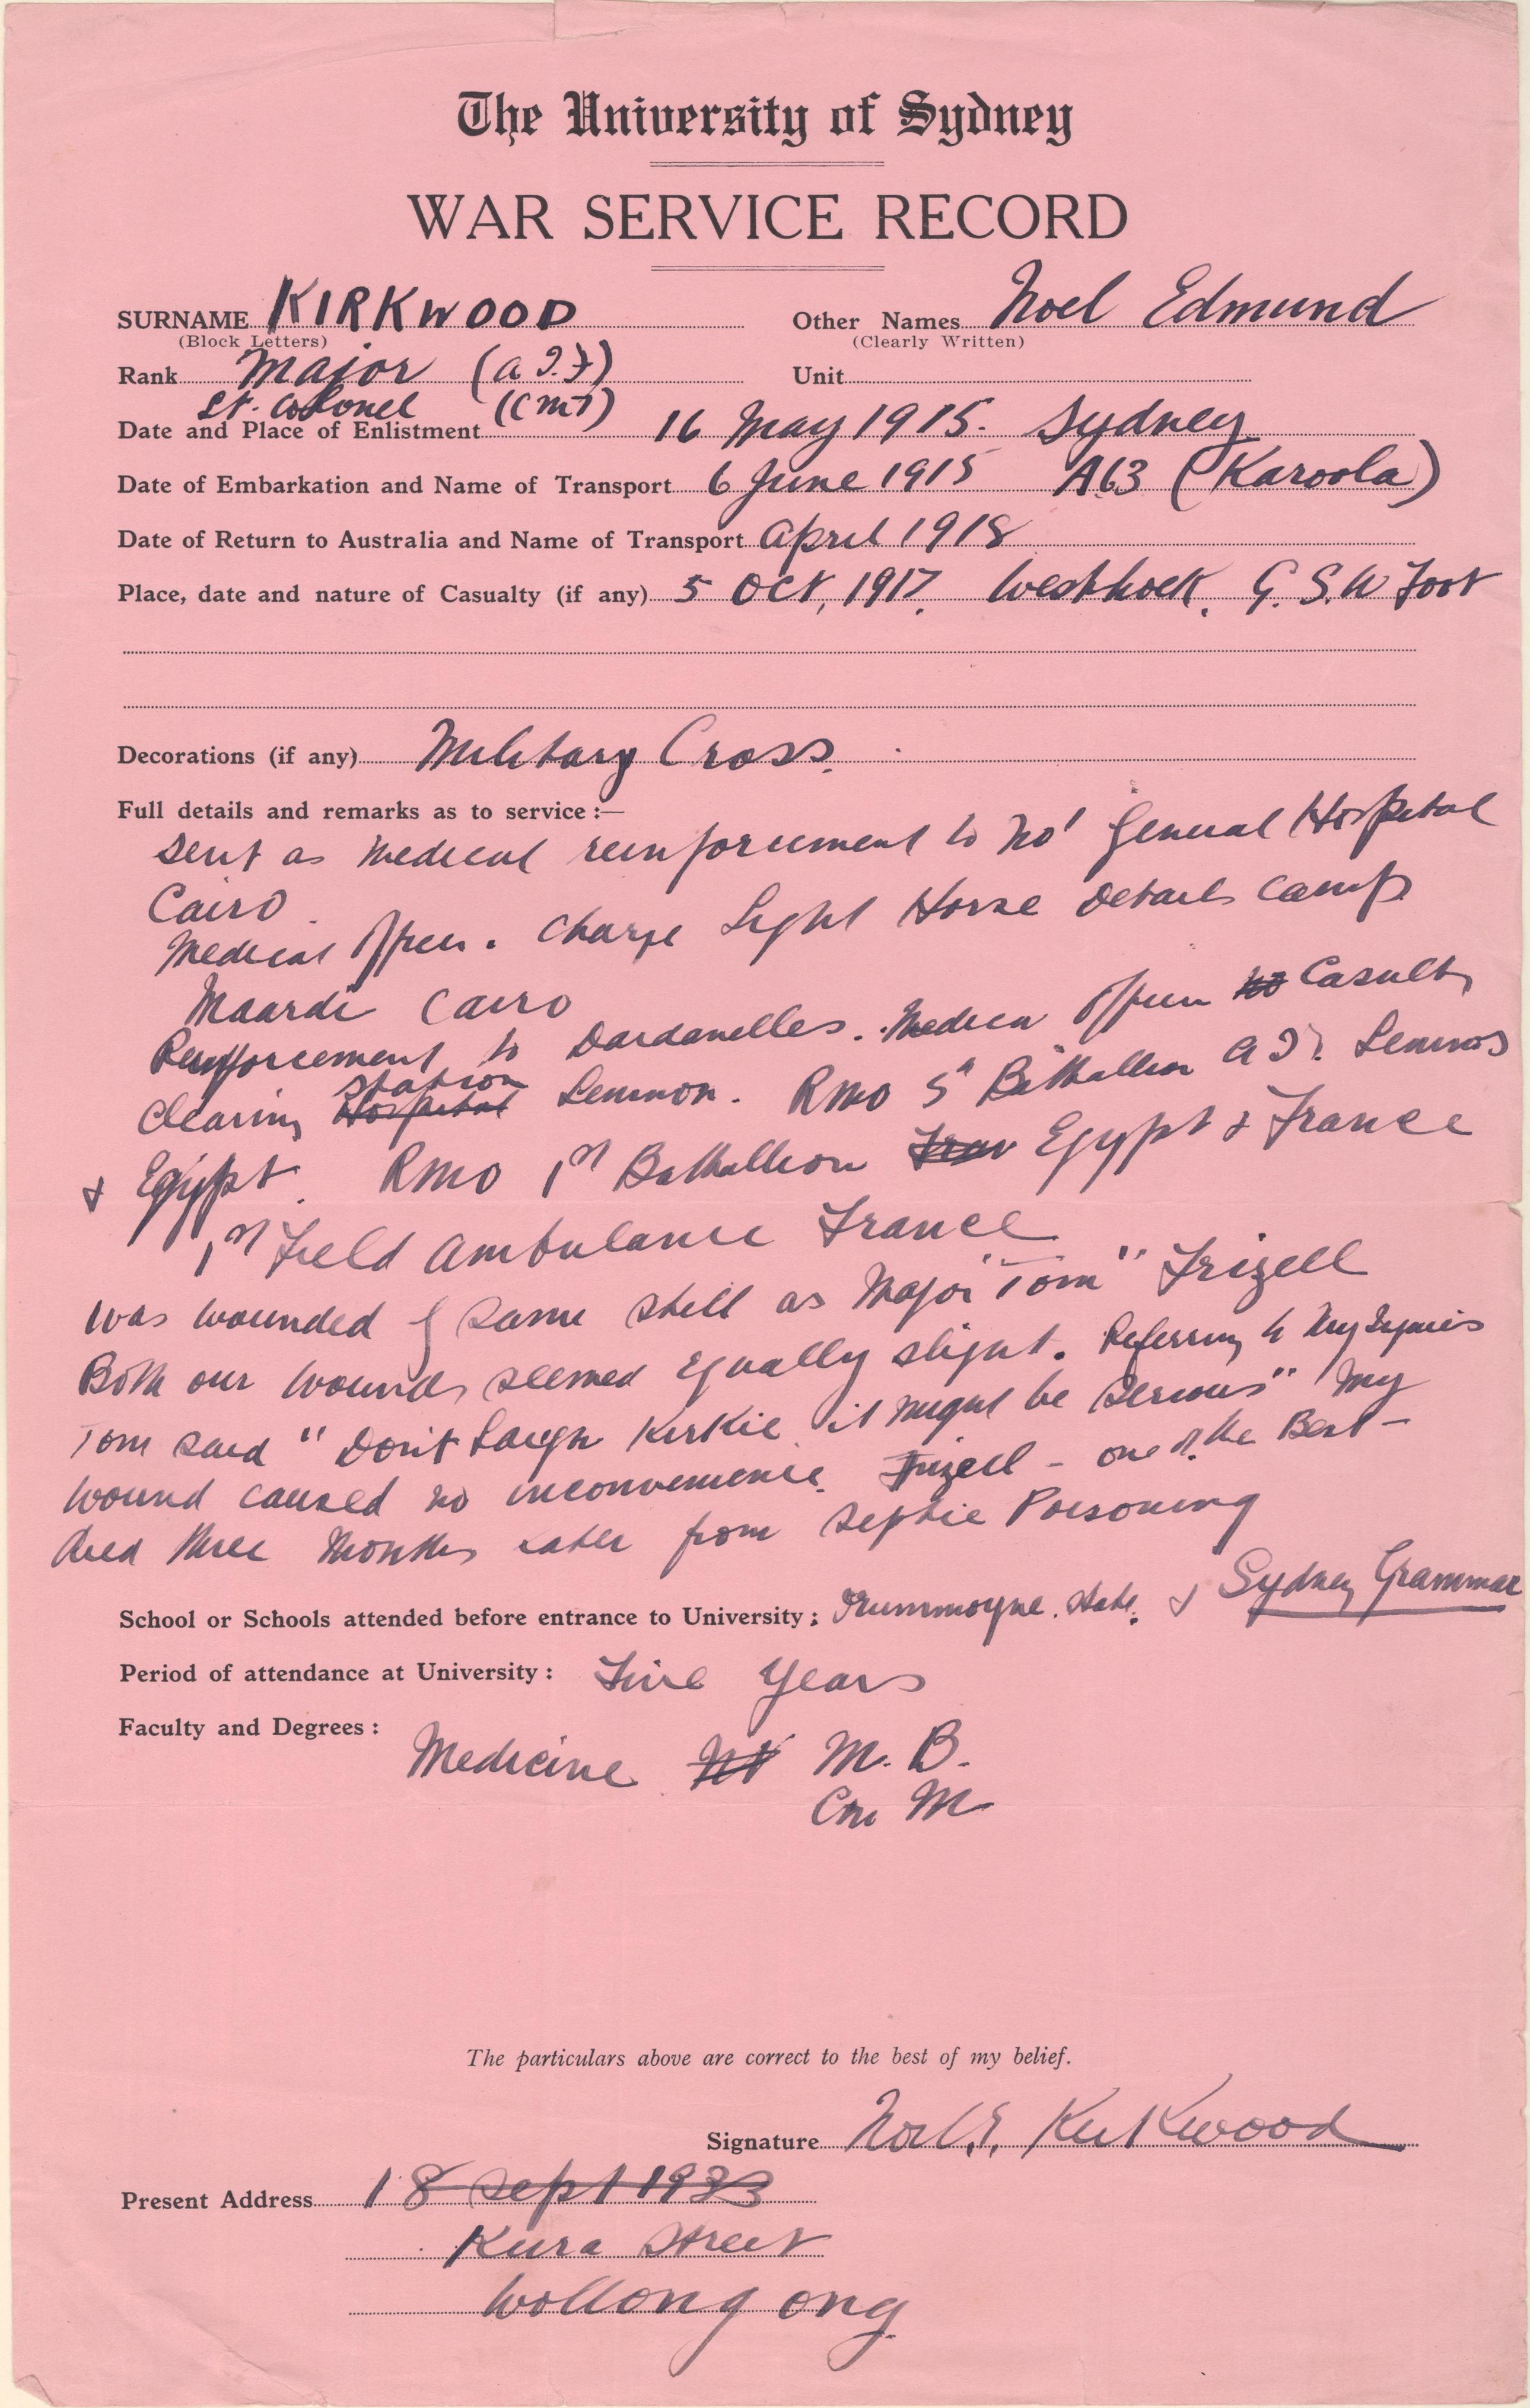 The University of Sydney
WAR SERVICE RECORD
SURNAME KIRKWOOD Other Names Noel Edmund
(Block Letters) (Clearly Written)
Rank Major (A.I.F) Unit
Lt. Colonel (CMF)
Date and Place of Enlistment 16 May 1915. Sydney
Date of Embarkation and Name of Transport 6 June 1915 A63 (Karoola)
Date of Return to Australia and Name of Transport April 1918
Place, date and nature of Casualty (if any) 5 Oct, 1917. Westhoek. G.S.W Foot
Decorations (if any) Military Cross.
Full details and remarks as to service:—
Sent as Medical reinforcement to No 1 General Hospital
Cairo.
Medical Officer. Charge Light Horse Details Camp
Maardi Cairo
Reinforcement to Dardanelles. Medical Officer Casualty
Clearing Station Hospital Lemnos. RMO 5th Battallion Lemnos
& Egypt. RMO 1st Battallion Egypt & France
1st Field Ambulance France
Was wounded by same shell as Major "Tom" Frizell
Both our wounds seemed equally slight. Referring to my injuries
Tom said "Don't laugh Kirkie it might be serious" My
wound caused no inconvenience. Frizell - one of the Best -
died three months later from Septic Poisoning
School or Schools attended before entrance to University: Drummoyne. State. & Sydney Grammar
Period of attendance at University: Five Years
Faculty and Degrees:
Medicine M.B.
Ch. M
The particulars above are correct to the best of my belief.
Signature Noel E. Kirkwood
Present Address 18 Sept 1933
Keira Street
Wollongong